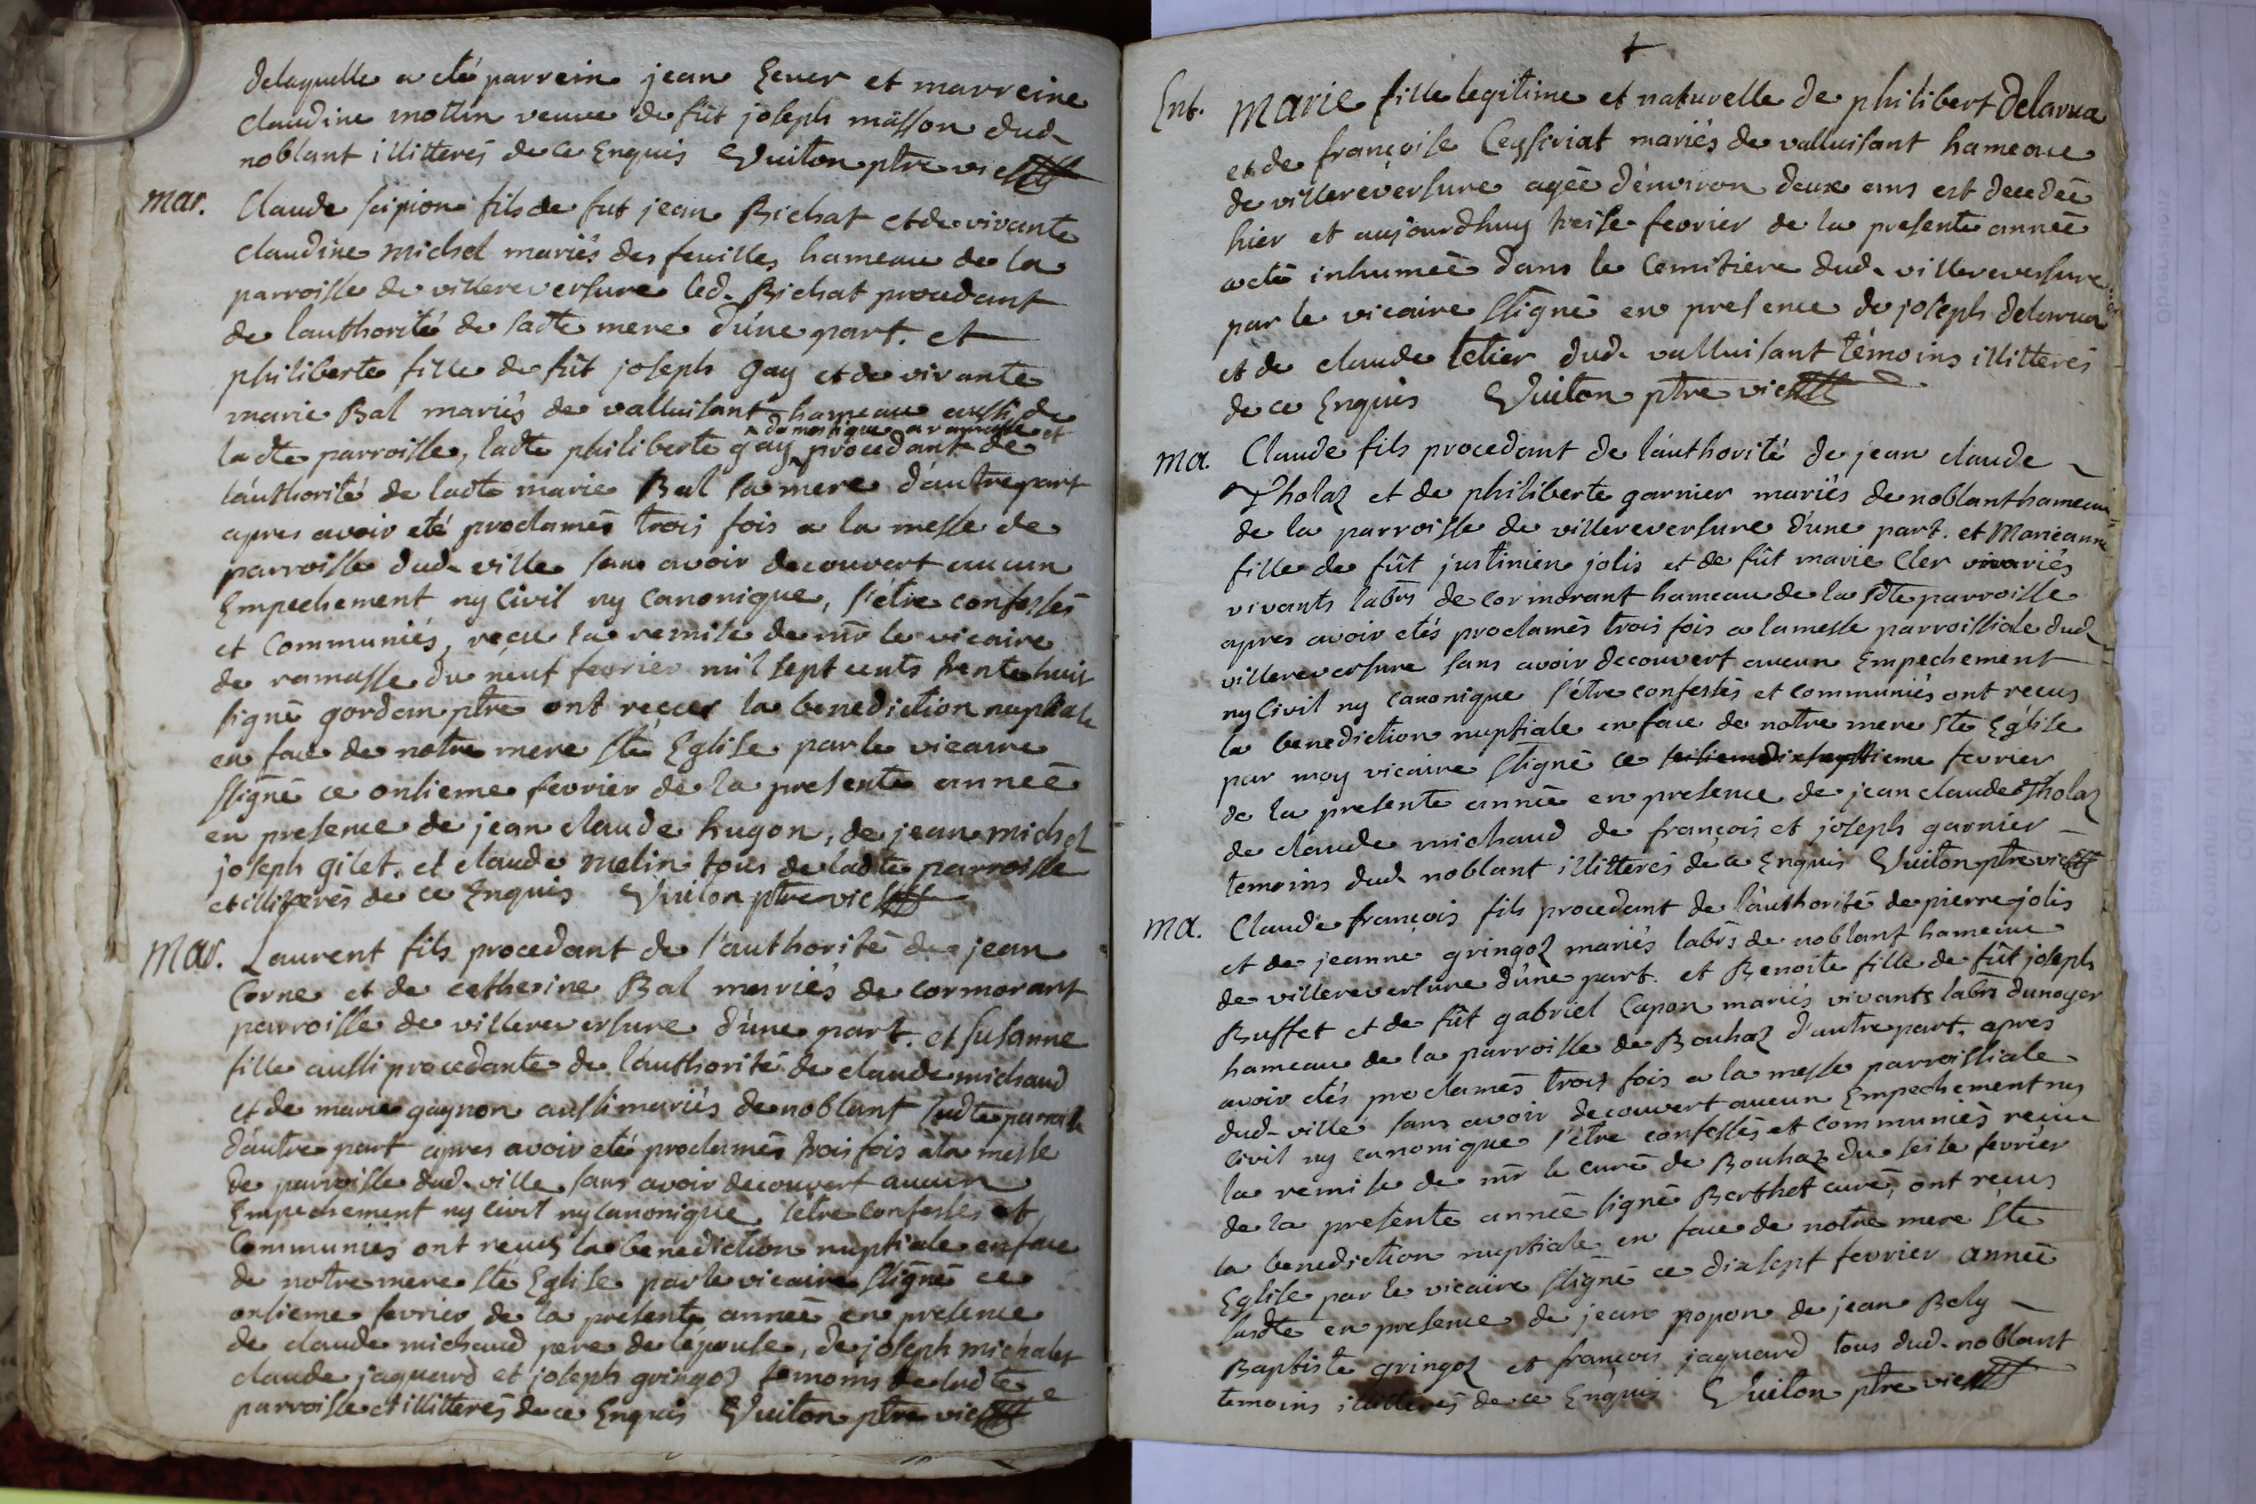 delaquelle a eté parrein jean Gener et marreine
claudine mottin veuve de fût joseph masson dud.
noblant illitterés de ce Enquis Vuiton ptre vic
mar. Claude scipion fils de fut jean Bichat et de vivante
claudine michel mariés des feuilles hameau de la
parroisse de villereversure led. Bichat procedant
de lauthorité de sadte mere d'une part. et
philiberte fille de fût joseph Gay et de vivante
marie Bal mariés de valluisant hameau aussi de
domestique a ramasse et
ladte parroisse, ladte philiberte gay procedant de
lauthorité de ladte marie Bal sa mere d'autre part
apres avoir eté proclamés trois fois a la messe de
parroisse dud. ville sans avoir decouvert aucun
Empechement ny Civil ny Canonique, s'être confessés
et Communiés, reçu la remise de mr le vicaire
de ramasse du neuf fevrier mil sept cents trente huit
signé gordon ptre ont reçus la benediction nuptiale
en face de notre mere ste Eglise par le vicaire
ssigné ce onsieme fevrier de la presente année
en presence de jean claude hugon, de jean michel
joseph gilet. et claude melin tous de ladte parroisse
et illitterés de ce Enquis Vuiton ptre vic
mar. Laurent fils procedant de l'authorité de jean
Corne et de catherine Bal mariés de cormorant
parroisse de villereversure d'une part. et susanne
fille aussi procedante de l'authorité de claude michaud
et de marie gagnon aussi mariés de noblant sudte parroisse
d'autre part apres avoir eté proclamés trois fois à la messe
de parroisse dud. ville sans avoir decouvert aucun
Empechement ny Civil ny Canonique, s'etre Confessés et
Communiés ont reçus la benediction nuptiale en face
de notre mere ste Eglise par le vicaire ssigné ce
onsieme fevrier de la presente année en presence
de claude michaud pere de l'epouse, de joseph michalet
claude jaquard et joseph gringoz temoins de ludte
parroisse et illitterés de ce Enquis Vuiton ptre vic
Ent. Marie fille legitime et naturelle de philibert Delarua
et de françoise Ceyssiriat mariés de valluisant hameau
de villereversure agée d'environ deux ans est decedée
hier et aujourdhuy treise fevrier de la presente année
a eté inhumeé dans le Cemitiere dud. villereversure
par le vicaire ssigné en presence de joseph delarua
et de claude letier dud. valluisant témoins illitterés
de ce Enquis Vuiton ptre vic
ma. Claude fils procedant de l'authorité de jean claude
Tholaz et de philiberte garnier mariés de noblant hameau
de la parroisse de villereversure d'une part. et Marieanne
fille de fût justinien jolis et de fût marie Cler mariés
vivants labrs de cormorant hameau de la sdte parroisse
apres avoir etés proclamés trois fois a la messe parroissiale dud
villereversure sans avoir decouvert aucun Empechement
ny Civil ny canonique s'être confessés et communiés ont reçus
la benediction nuptiale en face de notre mere ste Eglise
par moy vicaire ssigné ce dixseptieme fevrier
de la presente année en presence de jean claude Tholaz
de claude michaud de françois et joseph garnier
temoins dud. noblant illitterés de ce Enquis Vuiton ptre vic
ma. Claude françois fils procedant de l'authorité de pierre jolis
et de jeanne gringoz mariés labrs de noblant hameau
de villereversure d'une part. et Benoite fille de fût joseph
Buffet et de fût gabriel Capon mariés vivants labrs dunoyer
hameau de la parroisse de Bouhaz d'autre part, apres
avoir etés proclamés trois fois a la messe parroissiale
dud. ville sans avoir decouvert aucun Empechement ny
Civil ny canonique s'être confessés et communiés reçu
la remise de mr le curé de Bouhaz du seise fevrier
de la presente année signé Berthet curé, ont reçus
la benediction nuptiale en face de notre mere ste
Eglise par le vicaire ssigné ce dixsept fevrier année
susdte en presence de jean popon de jean Bely
Baptiste gringoz et françois jaquard tous dud. noblant
temoins illitterés de ce Enquis Vuiton ptre vic